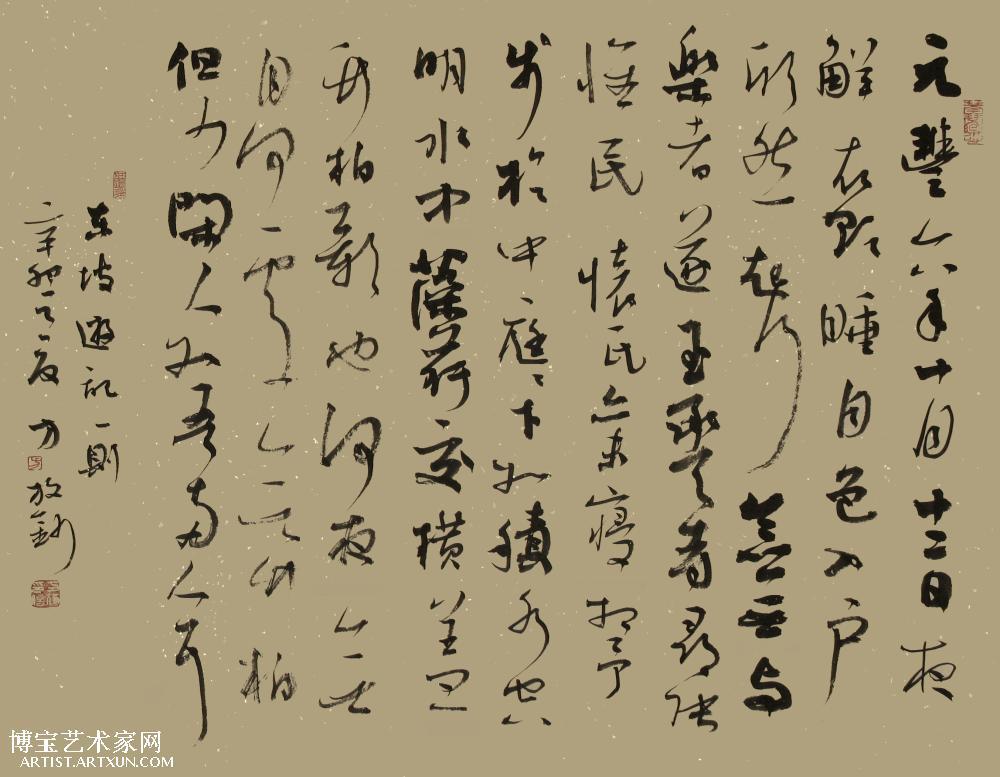 元豐六年十月十二日夜
解衣欲睡月色入戶
欣然起行念無與
樂者遂至承天寺尋張
懷民懷民亦未寢相与
步於中庭〻下如積水空
明水中藻荇交橫蓋
竹柏影也何夜無
月何處無竹柏
但少閑人如吾兩人耳
東坡遊記一則
辛卯之夏 方放
博宝艺术家网
ARTIST.ARTXUN.COM